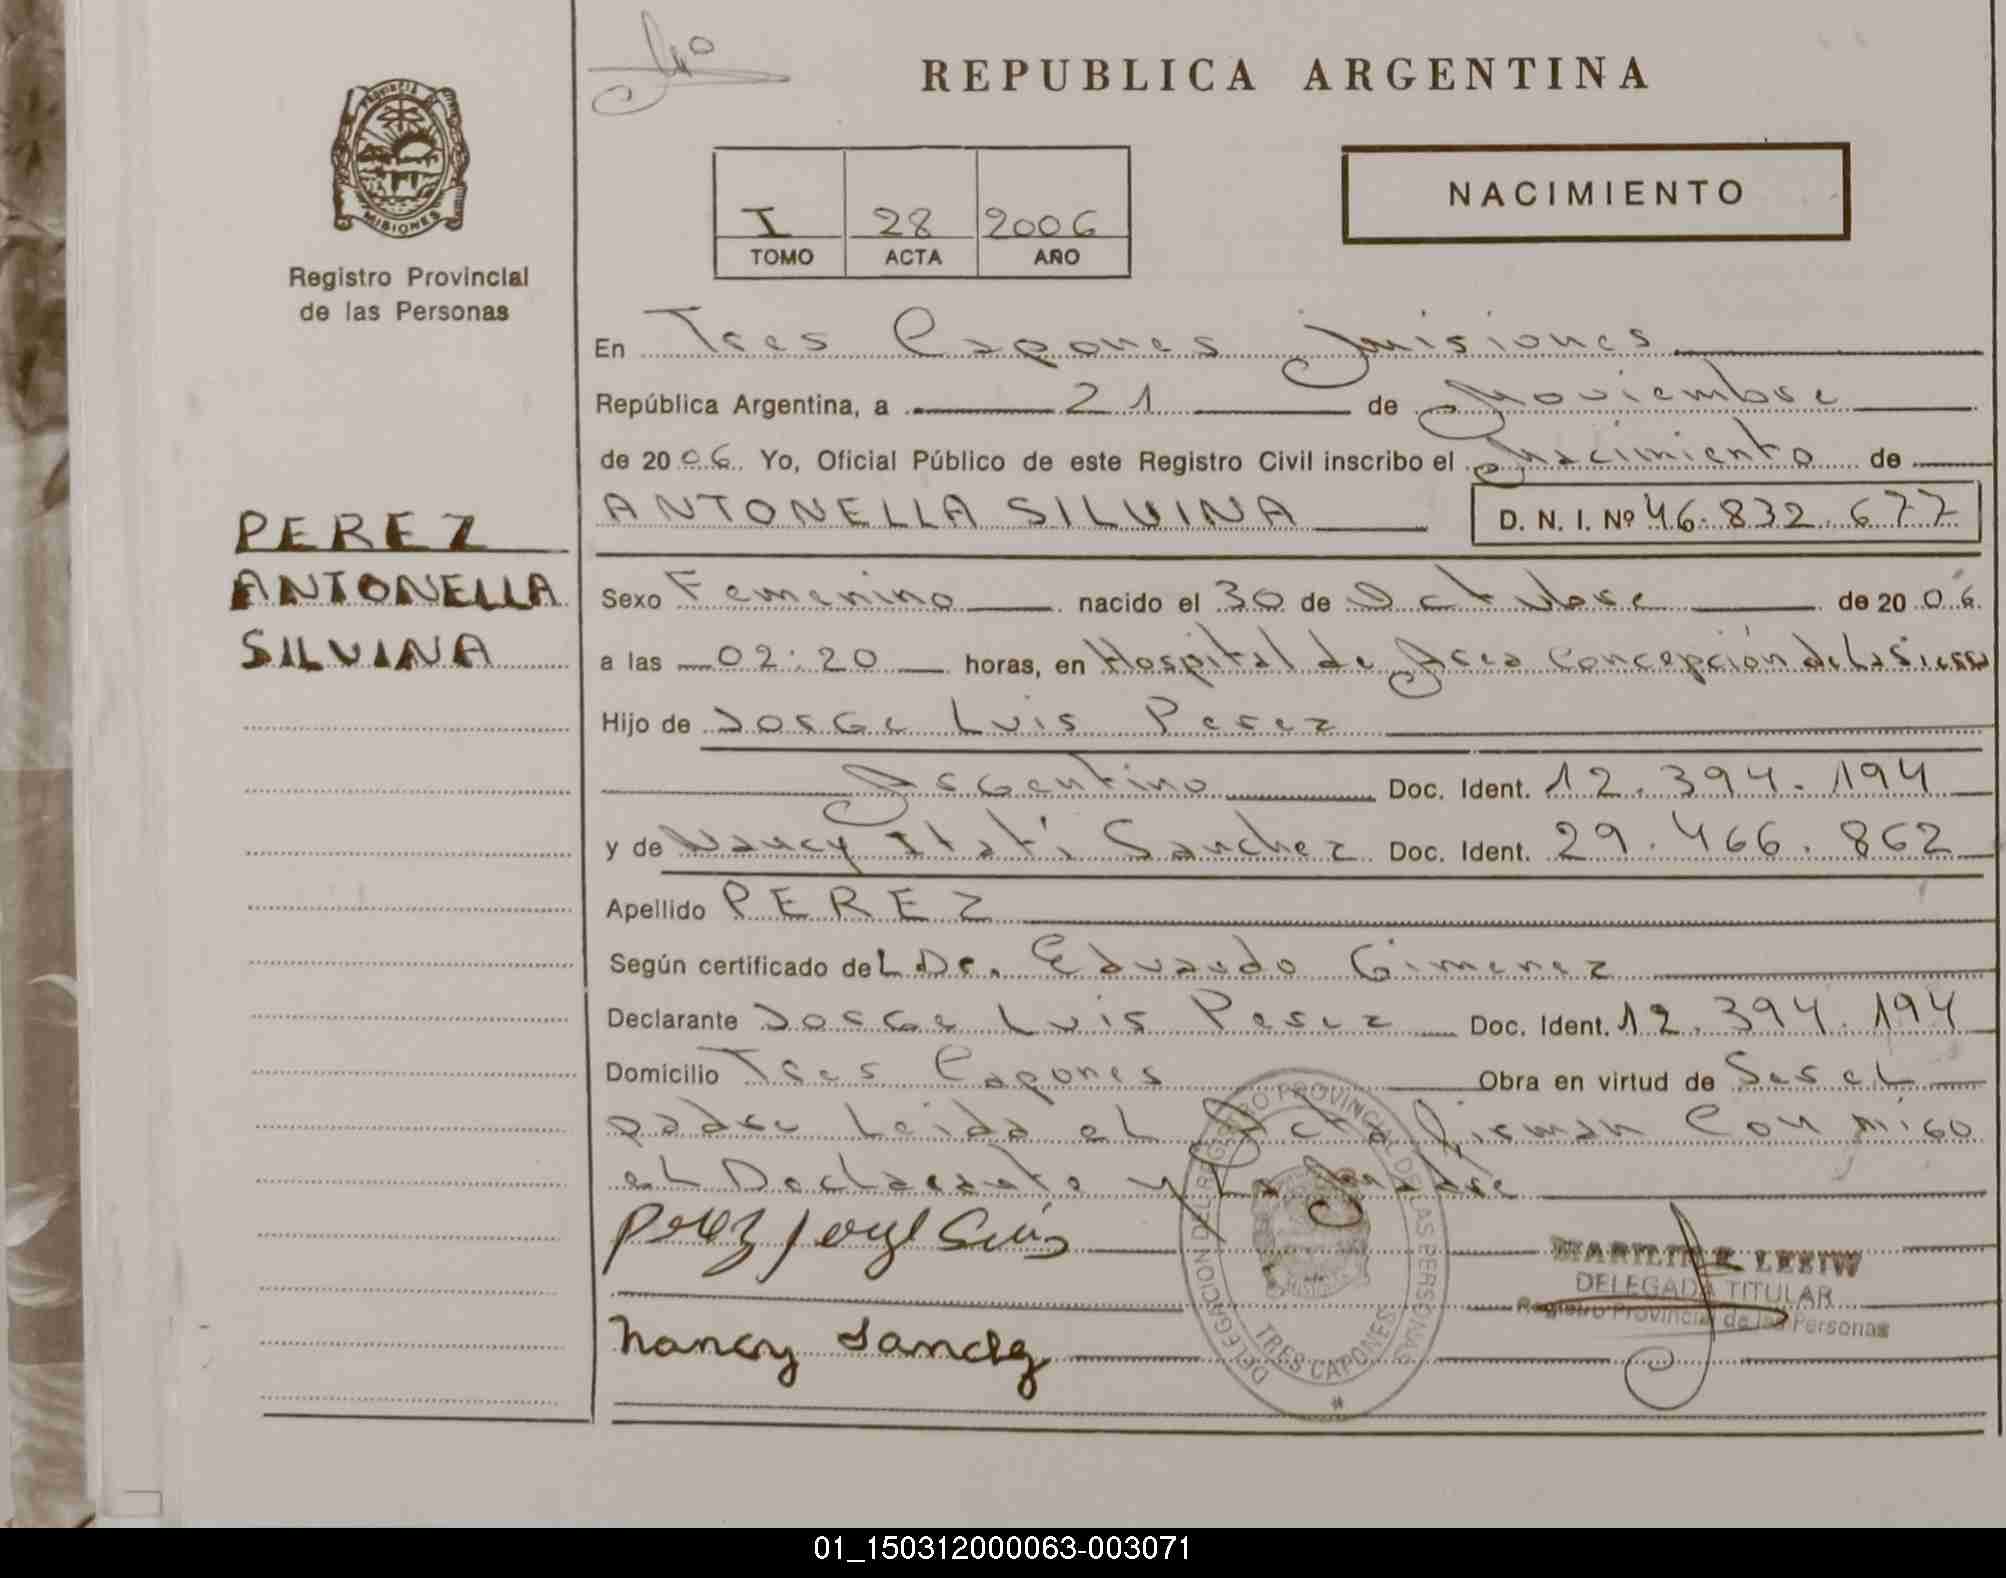 REPUBLICA ARGENTINA
PROVINCIA DE
MISIONES
Registro Provincial
de las Personas
I 28 2006
TOMO ACTA AÑO
NACIMIENTO
En Tres Capones Misiones
República Argentina, a 21 de Noviembre
de 2006. Yo, Oficial Público de este Registro Civil inscribo el Nacimiento de
ANTONELLA SILVINA D. N. I. Nº 46.832.677
PEREZ
ANTONELLA
SILVINA
Sexo Femenino nacido el 30 de Octubre de 2006.
a las 02:20 horas, en Hospital de Area Concepción de la Sierra
Hijo de Jorge Luis Perez
Argentino Doc. Ident. 12.394.194
y de Nancy Itatí Sanchez Doc. Ident. 29.466.862
Apellido PEREZ
Según certificado del Dr. Eduardo Gimenez
Declarante Jorge Luis Perez Doc. Ident. 12.394.194
Domicilio Tres Capones Obra en virtud de Ser el
padre Leida el Acta firman Con migo
el Declarante y La Madre
Perez Jorge Luis
Nancy Sanchez
DELEGACION DEL REGISTRO PROVINCIAL DE LAS PERSONAS
TRES CAPONES
DELEGADA TITULAR
Registro Provincial de las Personas
01_150312000063-003071